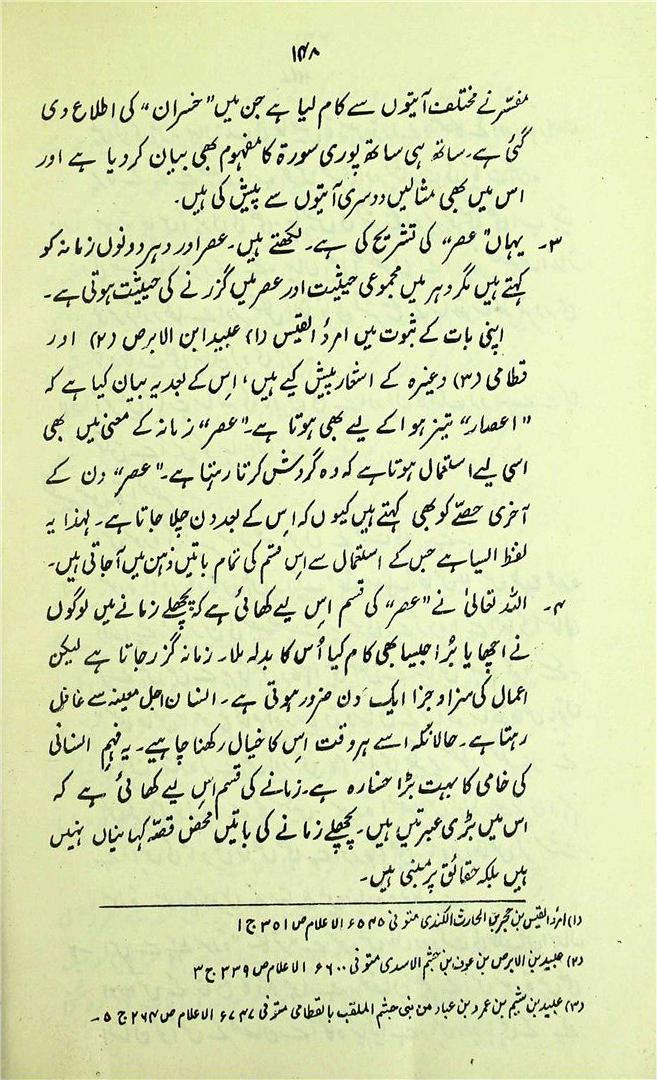 ۱۴۸
مفسّر نے مختلف آیتوں سے کام لیا ہے جن میں "خسران" کی اطلاع دی
گئی ہے۔ ساتھ ہی ساتھ پوری سورۃ کا مفہوم بھی بیان کر دیا ہے اور
اس میں بھی مثالیں دوسری آیتوں سے پیش کی ہیں۔
۳۔ یہاں "عصر" کی تشریح کی ہے۔ لکھتے ہیں۔ عصر اور دہر دونوں زمانہ کو
کہتے ہیں مگر دہر میں مجموعی حیثیت اور عصر میں گزرنے کی حیثیت ہوتی ہے۔
اپنی بات کے ثبوت میں امرؤ القیس (۱) عبید ابن الابرص (۲) اور
قطامی (۳) وغیرہ کے اشعار پیش کیے ہیں، اس کے بعد یہ بیان کیا ہے کہ
"اعصار" تیز ہوا کے لیے بھی ہوتا ہے۔ "عصر" زمانہ کے معنی میں بھی
اسی لیے استعمال ہوتا ہے کہ وہ گردش کرتا رہتا ہے۔ "عصر" دن کے
آخری حصّے کو بھی کہتے ہیں کیوں کہ اس کے بعد دن چلا جاتا ہے۔ لہذا یہ
لفظ ایسا ہے جس کے استعمال سے اس قسم کی تمام باتیں ذہن میں آجاتی ہیں۔
۴۔ اللہ تعالیٰ نے "عصر" کی قسم اس لیے کھائی ہے کہ پچھلے زمانے میں لوگوں
نے اچھا یا بُرا جیسا بھی کام کیا اُس کا بدلہ ملا۔ زمانہ گزر جاتا ہے لیکن
اعمال کی سزا و جزا ایک دن ضرور ہوتی ہے۔ انسان اجل معینہ سے غافل
رہتا ہے۔ حالانکہ اسے ہر وقت اس کا خیال رکھنا چاہیے۔ یہ فہمِ انسانی
کی خامی کا بہت بڑا خسارہ ہے۔ زمانے کی قسم اس لیے کھائی ہے کہ
اس میں بڑی عبرتیں ہیں۔ پچھلے زمانے کی باتیں محض قصّہ کہانیاں نہیں
ہیں بلکہ حقائق پر مبنی ہیں۔
(۱) امرؤ القیس بن حجر بن الحارث الکندی متوفی ۵۴۵ء الاعلام ص ۳۵۱ ج ۱
(۲) عبید بن الابرص بن عوف بن جشم الاسدی متوفی ۶۰۰ء الاعلام ص ۳۳۹ ج ۳
(۳) عبید بن شیم بن عمرو بن عباد من بنی جشم الملقب بالقطامی متوفی ۷۴۷ء الاعلام ص ۲۶۴ ج ۵۔